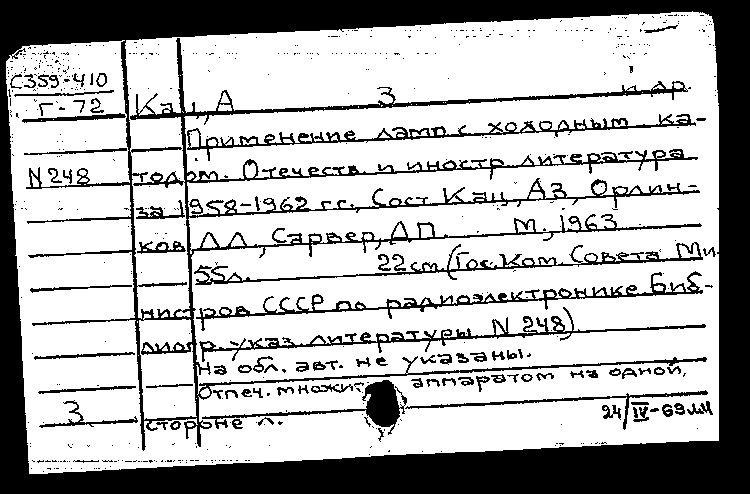 С359-410
Г-72 Кац, А З и др
Применение ламп с холодным ка-
N 248 тодом. Отечеств и иностр литература
за 1958-1962 гг., Сост Кац, АЗ, Орлин-
ков, Л.Л., Сарвер, ДП. М., 1963
55л. 22см. (Гос. Ком. Совета Ми-
нистров СССР по радиоэлектронике Биб-
лиогр указ. литературы N 248)
На обл. авт. не указаны.
Отпеч. множит аппаратом на одной
3 стороне л. 24/IV-69